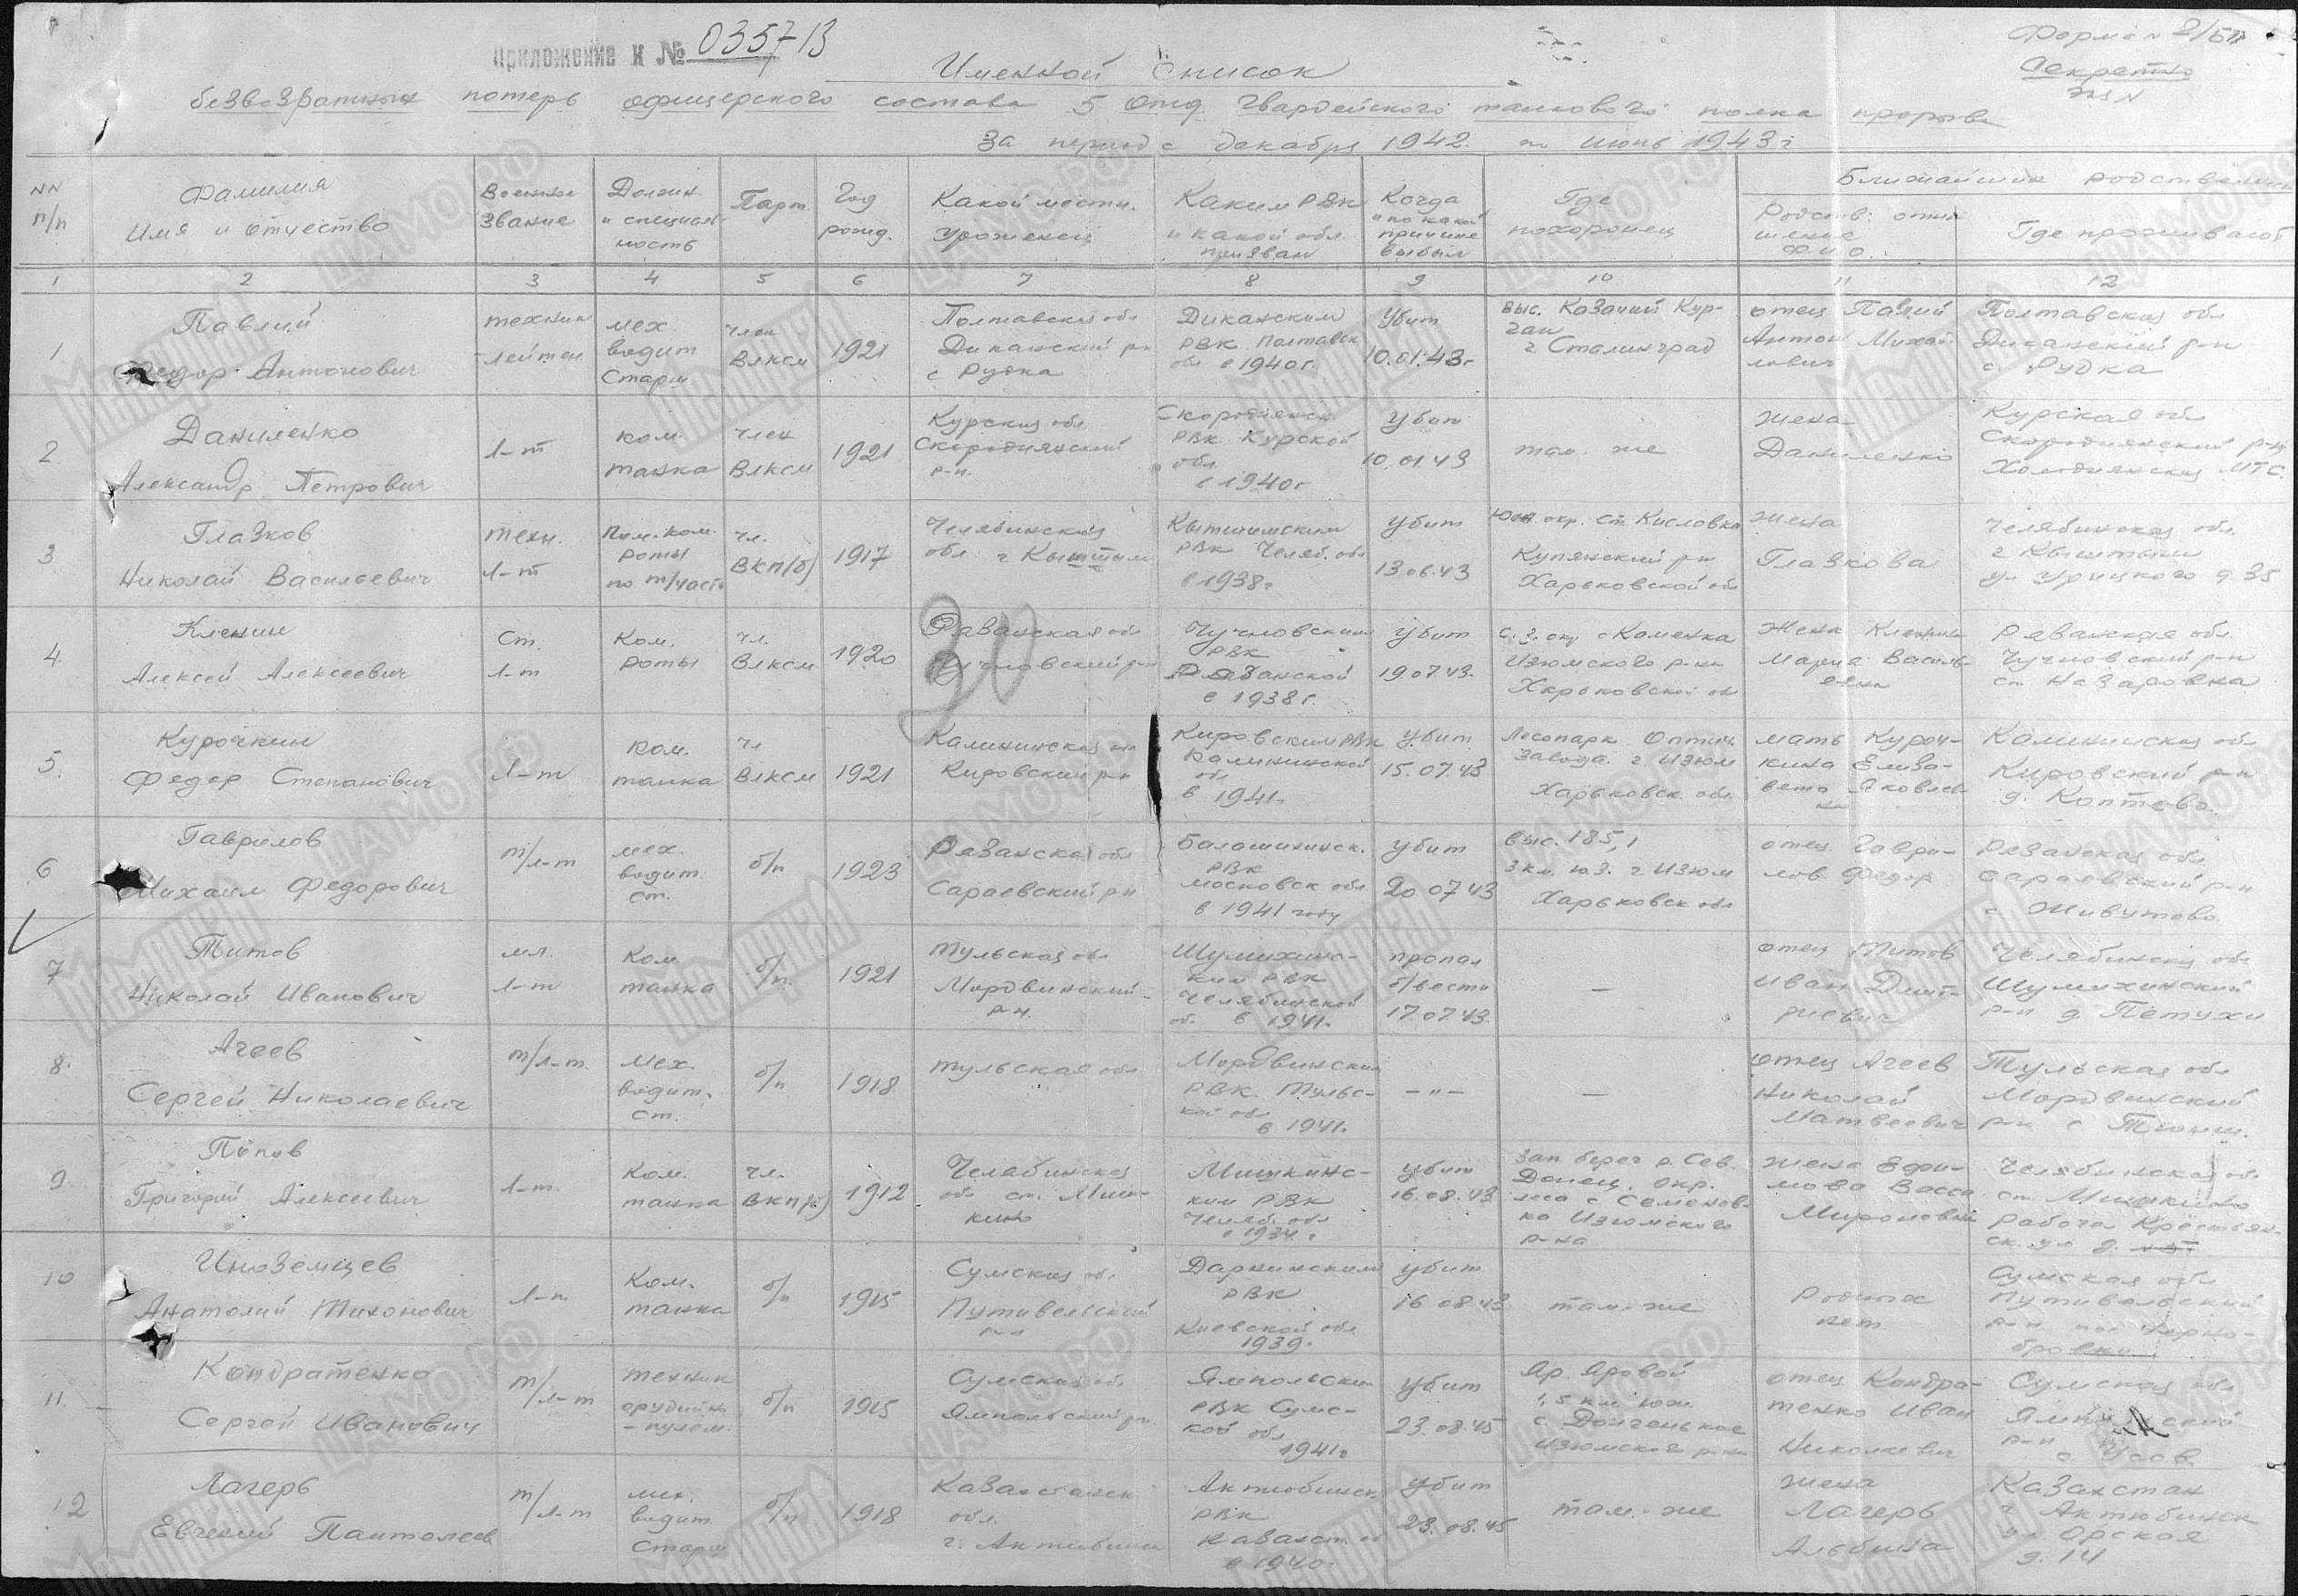 приложение к № 03573
Форма N 2/БП
Секретно
Экз N
Именной Список
безвозвратных потерь офицерского состава 5 отд. Гвардейского танкового полка прорыва
За период с декабря 1942 по июнь 1943 г
NN п/п
Фамилия Имя и отчество
Военное звание
Должн. и специальность
Парт.
Год рожд.
Какой местн. уроженец
Каким РВК и какой обл. призван
Когда и по какой причине выбыл
Где похоронен
Ближайшие родственники
Родств. отношение Ф.И.О.
Где проживают
1 2 3 4 5 6 7 8 9 10 11 12
1
Павлий
Федор Антонович
техник
-лейтен.
мех.
водит
Старш
член
ВЛКСМ
1921
Полтавская обл
Диканский р-н
с Рудка
Диканским
РВК Полтавск
обл в 1940 г.
Убит
10.01.43 г
выс. Казачий Кур-
ган
г. Сталинград
отец Павлий
Антон Михай-
лович
Полтавская обл
Диканский р-н
с. Рудка
2
Даниленко
Александр Петрович
Л-т
ком.
танка
член
ВЛКСМ
1921
Курская обл.
Скороднянский
р-н.
Скороднянск.
РВК Курской
обл.
в 1940 г
Убит
10.01.43
там же
жена
Даниленко
Курская обл
Скороднянский р-н
МТС.
3
Глазков
Николай Васильевич
техн.
Л-т
Пом. ком.
роты
по т/части
чл.
ВКП(б)
1917
Челябинская
обл г Кыштым
Кыштымским
РВК Челяб. обл
в 1938 г
Убит
13.06.43
окр. ст. Кисловка
Купянский р-н
Харьковской обл
жена
Глазкова
Челябинская обл.
г Кыштым
ул Урицкого д 35
4.
Кленин
Алексей Алексеевич
Ст.
Л-т
Ком.
роты
чл.
ВЛКСМ
1920
Рязанская обл
Чучковский р-н
30
Чучковским
РВК
Рязанской
в 1938 г.
Убит
19.07.43.
с. з. окр. с Каменка
Изюмского р-на
Харьковской обл
Жена Кленина
Мария Василь-
евна
Рязанская обл.
Чучковский р-н
ст Назаровка
5.
Курочкин
Федор Степанович
Л-т
ком.
танка
чл
ВЛКСМ
1921
Калининская обл
Кировский р-н
Кировским РВК
Калининской
обл
в 1941 г.
Убит
15.07.43
Лесопарк Оптич.
Завода. г. Изюм
Харьковск. обл.
мать Куроч-
кина Елиза-
вета Яковлев
на
Калининская обл
Кировский р-н
д. Коптево.
6
Гаврилов
Михаил Федорович
т/л-т
мех.
водит.
ст.
б/п
1923
Рязанская обл
Сараевский р-н
Балашихинск.
РВК
московск обл
в 1941 году
Убит
20.07.43
выс. 185,1
3 км. ю.з. г Изюм
Харьковск обл
отец Гаври-
лов Федор
Рязанская обл
Сараевский р-н
с
7
Титов
Николай Иванович
мл.
Л-т
Ком.
танка
б/п.
1921
Тульская обл
Мордвинский
р-н.
Шумихинс-
ким РВК
Челябинской
об. в 1941 г.
пропал
б/вести
17.07.43.
—
отец Титов
Иван Дмит-
риевич
Челябинская обл
Шумихинский
р-н д. Петухи
8.
Агеев
Сергей Николаевич
т/л-т.
Мех.
водит.
ст.
б/п
1918
Тульская обл
Мордвинским
РВК. Тульс-
кой обл
в 1941 г.
— " —
—
отец Агеев
Николай
Матвеевич
Тульская обл
Мордвинский
р-н с
9
Попов
Григорий Алексеевич
Л-т.
Ком.
танка
чл.
ВКП(б)
1912
Челябинская
обл ст. Миш-
кино
Мишкинс-
ким РВК
Челяб. обл
в 1934 г
убит
16.08.43
Зап берег р. Сев.
Донец. окр.
леса с Семенов-
ка Изюмского
р-на
жена Ефи-
мова Васса
Мироновна
Челябинская обл.
ст. Мишкино
Рабоче Крестьян-
ск. ул д.
10
Иноземцев
Анатолий Тихонович
Л-т
Ком.
танка
б/п
1915
Сумская обл
Путивельский
р-н
Дарницким
РВК
Киевской обл.
1939 г.
убит
16.08.43
там же
Родных
нет.
Сумская обл
Путивельский
р-н
11.
Кондратенко
Сергей Иванович
т/л-т
техник
орудийн
-пулем.
б/п
1915
Сумская об
Ямпольский р-н.
Ямпольским
РВК Сумс-
кой обл
1941 г
убит
23.08.45
Яр. Яровой
1,5 км юж.
с. Долгенькое
Изюмского р-на
отец Кондра-
тенко Иван
Николаевич
Сумская обл
Ямпольский
р-н
12
Лагерь
Евгений Пантелеев
т/л-т
мех.
водит
Старш
б/п
1918
Казахстанск
обл.
г. Актюбинск
Актюбинск.
РВК
Казахст.
в 1940 г.
убит
23.08.45
там же
жена
Лагерь
Альбина
Казахстан
г. Актюбинск
ул Орская
д. 14
Мемориал
ЦАМО.РФ